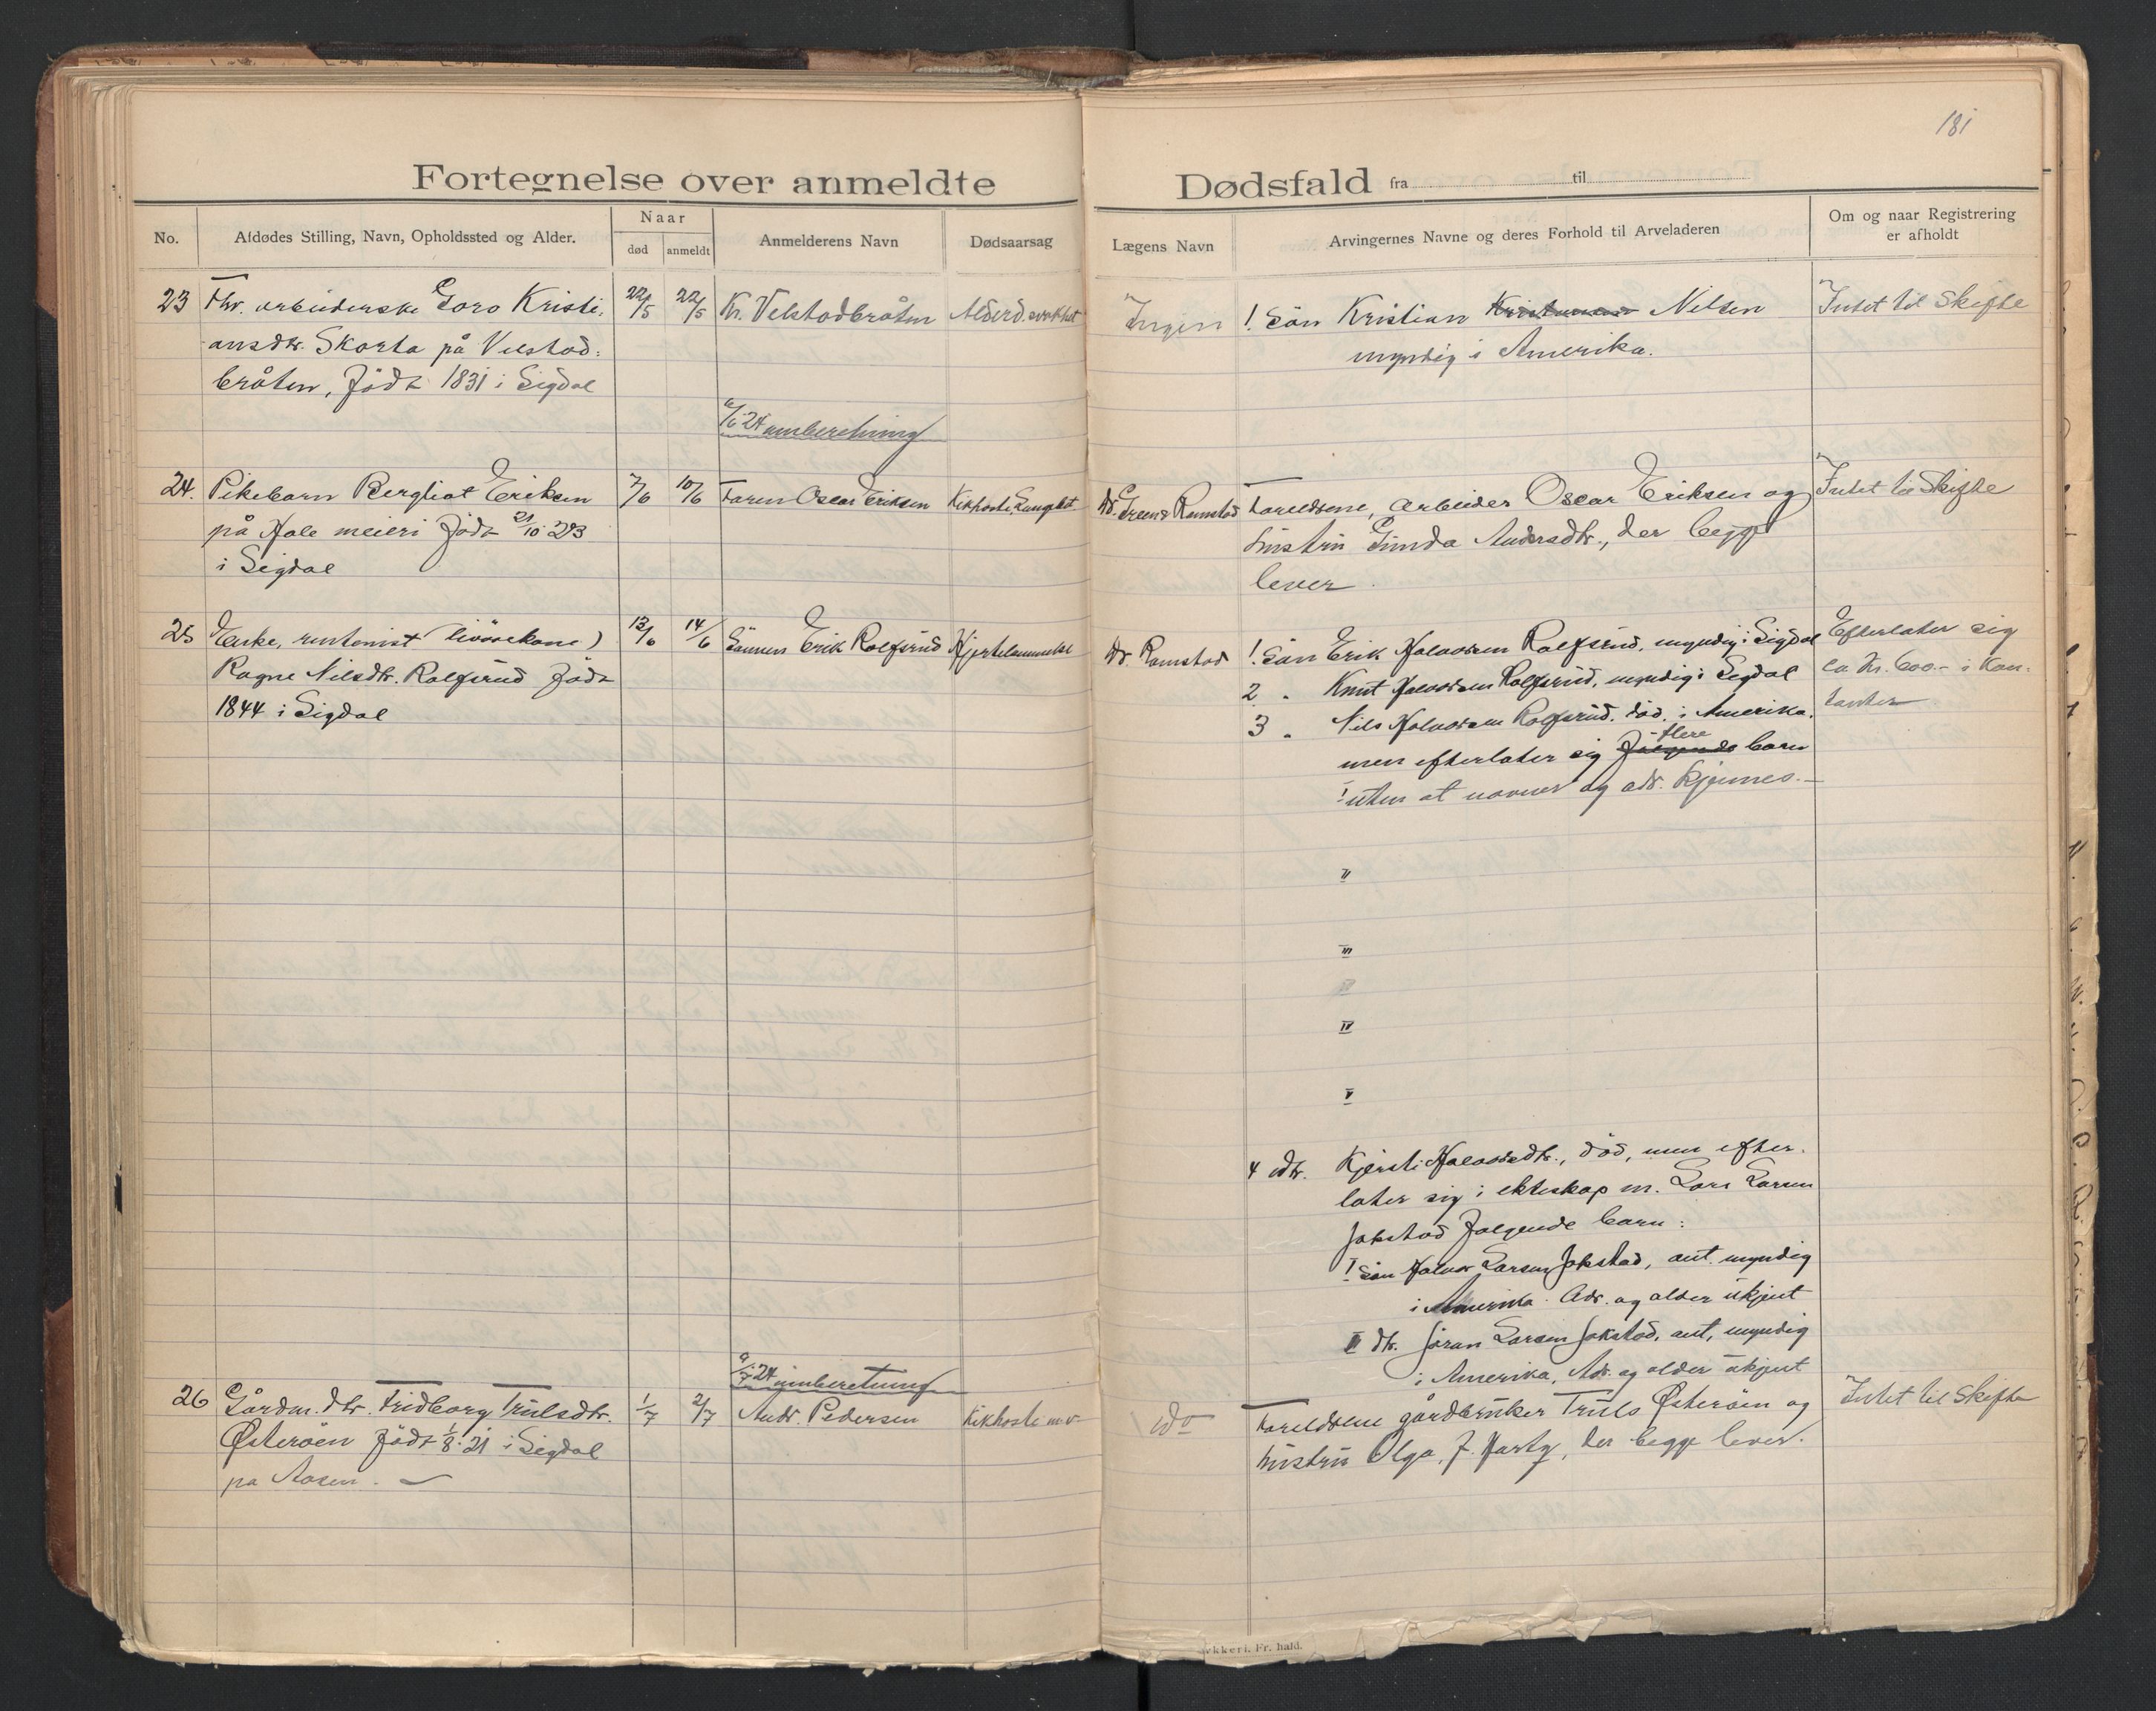 181
Fortegnelse over anmeldte Dødsfald fra til
No. Afdødes Stilling, Navn, Opholdssted og Alder. Naar død anmeldt Anmelderens Navn Dødsaarsag Lægens Navn Arvingernes Navne og deres Forhold til Arveladeren Om og naar Registrering er afholdt
23 Fhv. arbeiderske Goro Kristi- 22/5 22/5 Kr. Velstadbråten Alderd.svakhet Ingen 1. Sön Kristian Nilsen Intet til Skifte
ansdtr. Skorta på Velstad- myndig i Amerika.
bråten, född 1831 i Sigdal
6/6 24 innberetning
24. Pikebarn Bergliot Eriksen 7/6 10/6 Faren Oscar Eriksen Kikhoste, Lungebet Dr. Ramstad Foreldrene, arbeider Oscar Eriksen og Intet til Skifte
på Hole meieri född 21/10 23 hustru Gunda Andersdtr., der begge
i Sigdal lever.
25 Enke, rentenist (livörekone) 13/6 14/6 Sönnen Erik Rolfsrud Hjertelammelse Dr. Ramstad 1. Sön Erik Halvorsen Rolfsrud, myndig i Sigdal Efterlater sig
Ragne Nilsdtr. Rolfsrud född 2 " Knut Halvorsen Rolfsrud, myndig i Sigdal ca kr. 600.- i kon-
1844 i Sigdal 3 " Nils Halvorsen Rolfsrud. död i Amerika. tanter
men efterlater sig følgende flere barn
I uten at navner og adr. kjennes.—
II
III
IV
V
4 dtr. Kjersti Halvorsdtr., död, men efter-
later sig i ekteskap m. Lars Larsen
Jokstad følgende barn:
I Sön Halvor Larsen Jokstad, ant. myndig
i Amerika. Adr. og alder ukjent
II dtr. Jöran Larsen Jokstad, ant. myndig
i Amerika, Adr. og alder ukjent
9/7 24 innberetning
26 Gårdm. dtr. Fridborg Trulsdtr. 1/7 2/7 Andr. Pedersen Kikhoste m.v. do Foreldrene gårdbruker Truls Østeröen og Intet til Skifte
Østeröen född 1/8 21 i Sigdal hustru Olga, f. , der begge lever.
på Aasen.
kkeri. Fr. hald.